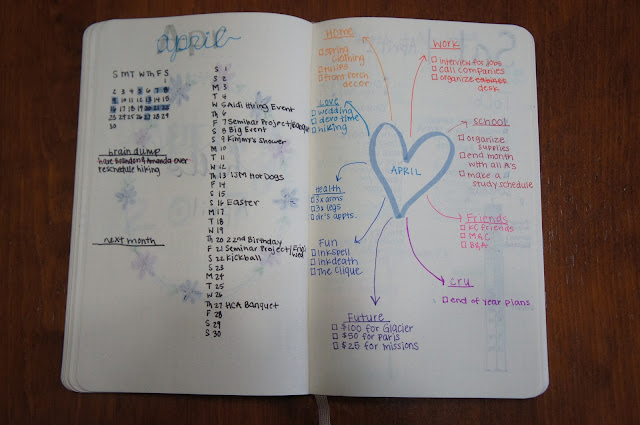 april
S M T W Th F S
1
2 3 4 5 6 7 8
9 10 11 12 13 14 15
16 17 18 19 20 21 22
23 24 25 26 27 28 29
30
brain dump
have Brandon & Amanda over
reschedule hiking
next month
S 1
S 2
M 3
T 4
W 5 Aldi Hiring Event
Th 6
F 7 Seminar Project/
S 8 Big Event
S 9 shower
M 10
T 11
W 12
Th 13 IJM Hot Dogs
F 14
S 15
S 16 Easter
M 17
T 18
W 19
Th 20 22nd Birthday
F 21 Seminar Project/
S 22 Kickball
S 23
M 24
T 25
W 26
Th 27 HCA Banquet
F 28
S 29
S 30
Home
spring
clothing
tulips
front porch
decor
Love
wedding
devo time
hiking
Health
3x arms
3x legs
dr's appts.
Fun
inkspell
inkdeath
The Clique
Future
$100 for Glacier
$50 for Paris
$25 for missions
APRIL
Work
interview for jobs
call companies
organize
desk
School
organize
supplies
end month
with all A's
make a
study schedule
Friends
KC friends
M&C
B&A
cru
end of year plans